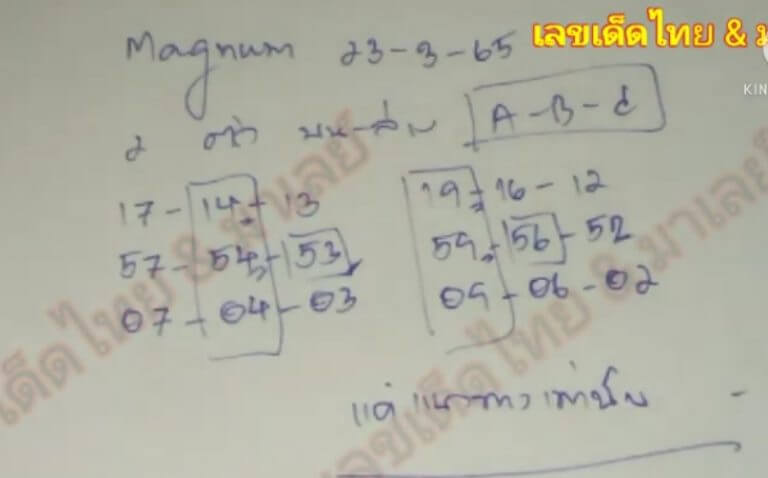 Magnum 23-3-65
เลขเด็ดไทย & ม
KIN
2 ตัว บน-ล่าง A-B-C
17-14-13 19-16-12
57-54-53 59-56-52
07-04-03 09-06-02
แค่แนวทางเท่านั้น -
เด็ดไทย & มาเลย์
เลขเด็ดไทย & มาเลย์